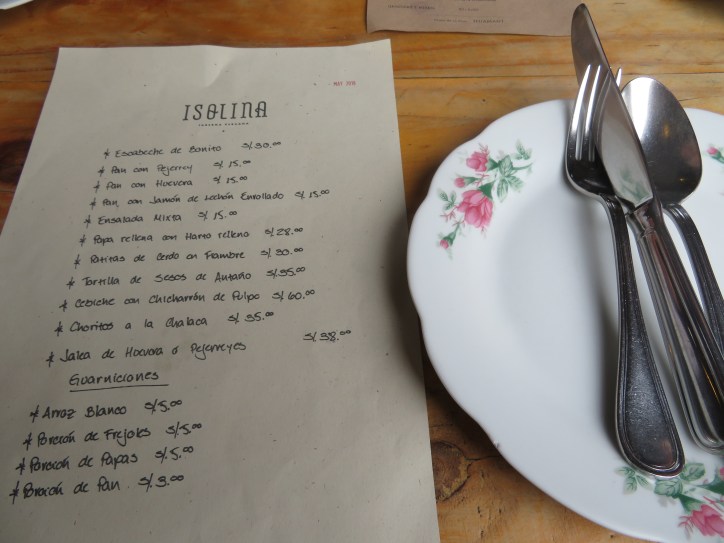 MAY 2016
ISOLINA
TABERNA PERUANA
* Escabeche de Bonito S/.30.00
* Pan con Pejerrey S/. 15.00
* Pan con Huevera S/. 15.00
* Pan con Jamón de Lechón Enrollado S/. 15.00
* Ensalada Mixta S/. 15.00
* Papa rellena con Harto relleno S/.28.00
* Patitas de Cerdo en Fiambre S/.30.00
* Tortilla de Sesos de Antaño S/.35.00
* Cebiche con Chicharrón de Pulpo S/.60.00
* Choritos a la Chalaca S/.35.00
* Jalea de Huevera o Pejerreyes S/.38.00
Guarniciones
* Arroz Blanco S/5.00
* Porción de Frejoles S/.5.00
* Porción de Papas S/.5.00
* Porción de Pan. S/.3.00